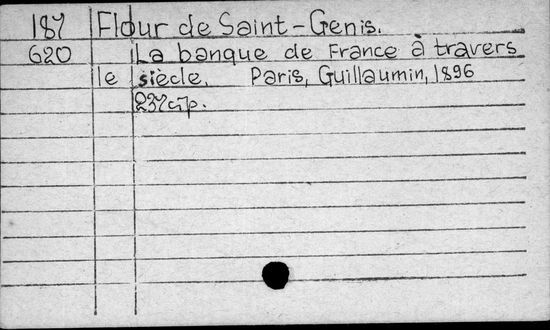 187 Flour de Saint-Genis.
620 La banque de France à travers
le siècle. Paris, Guillaumin, 1896
237 с/р.